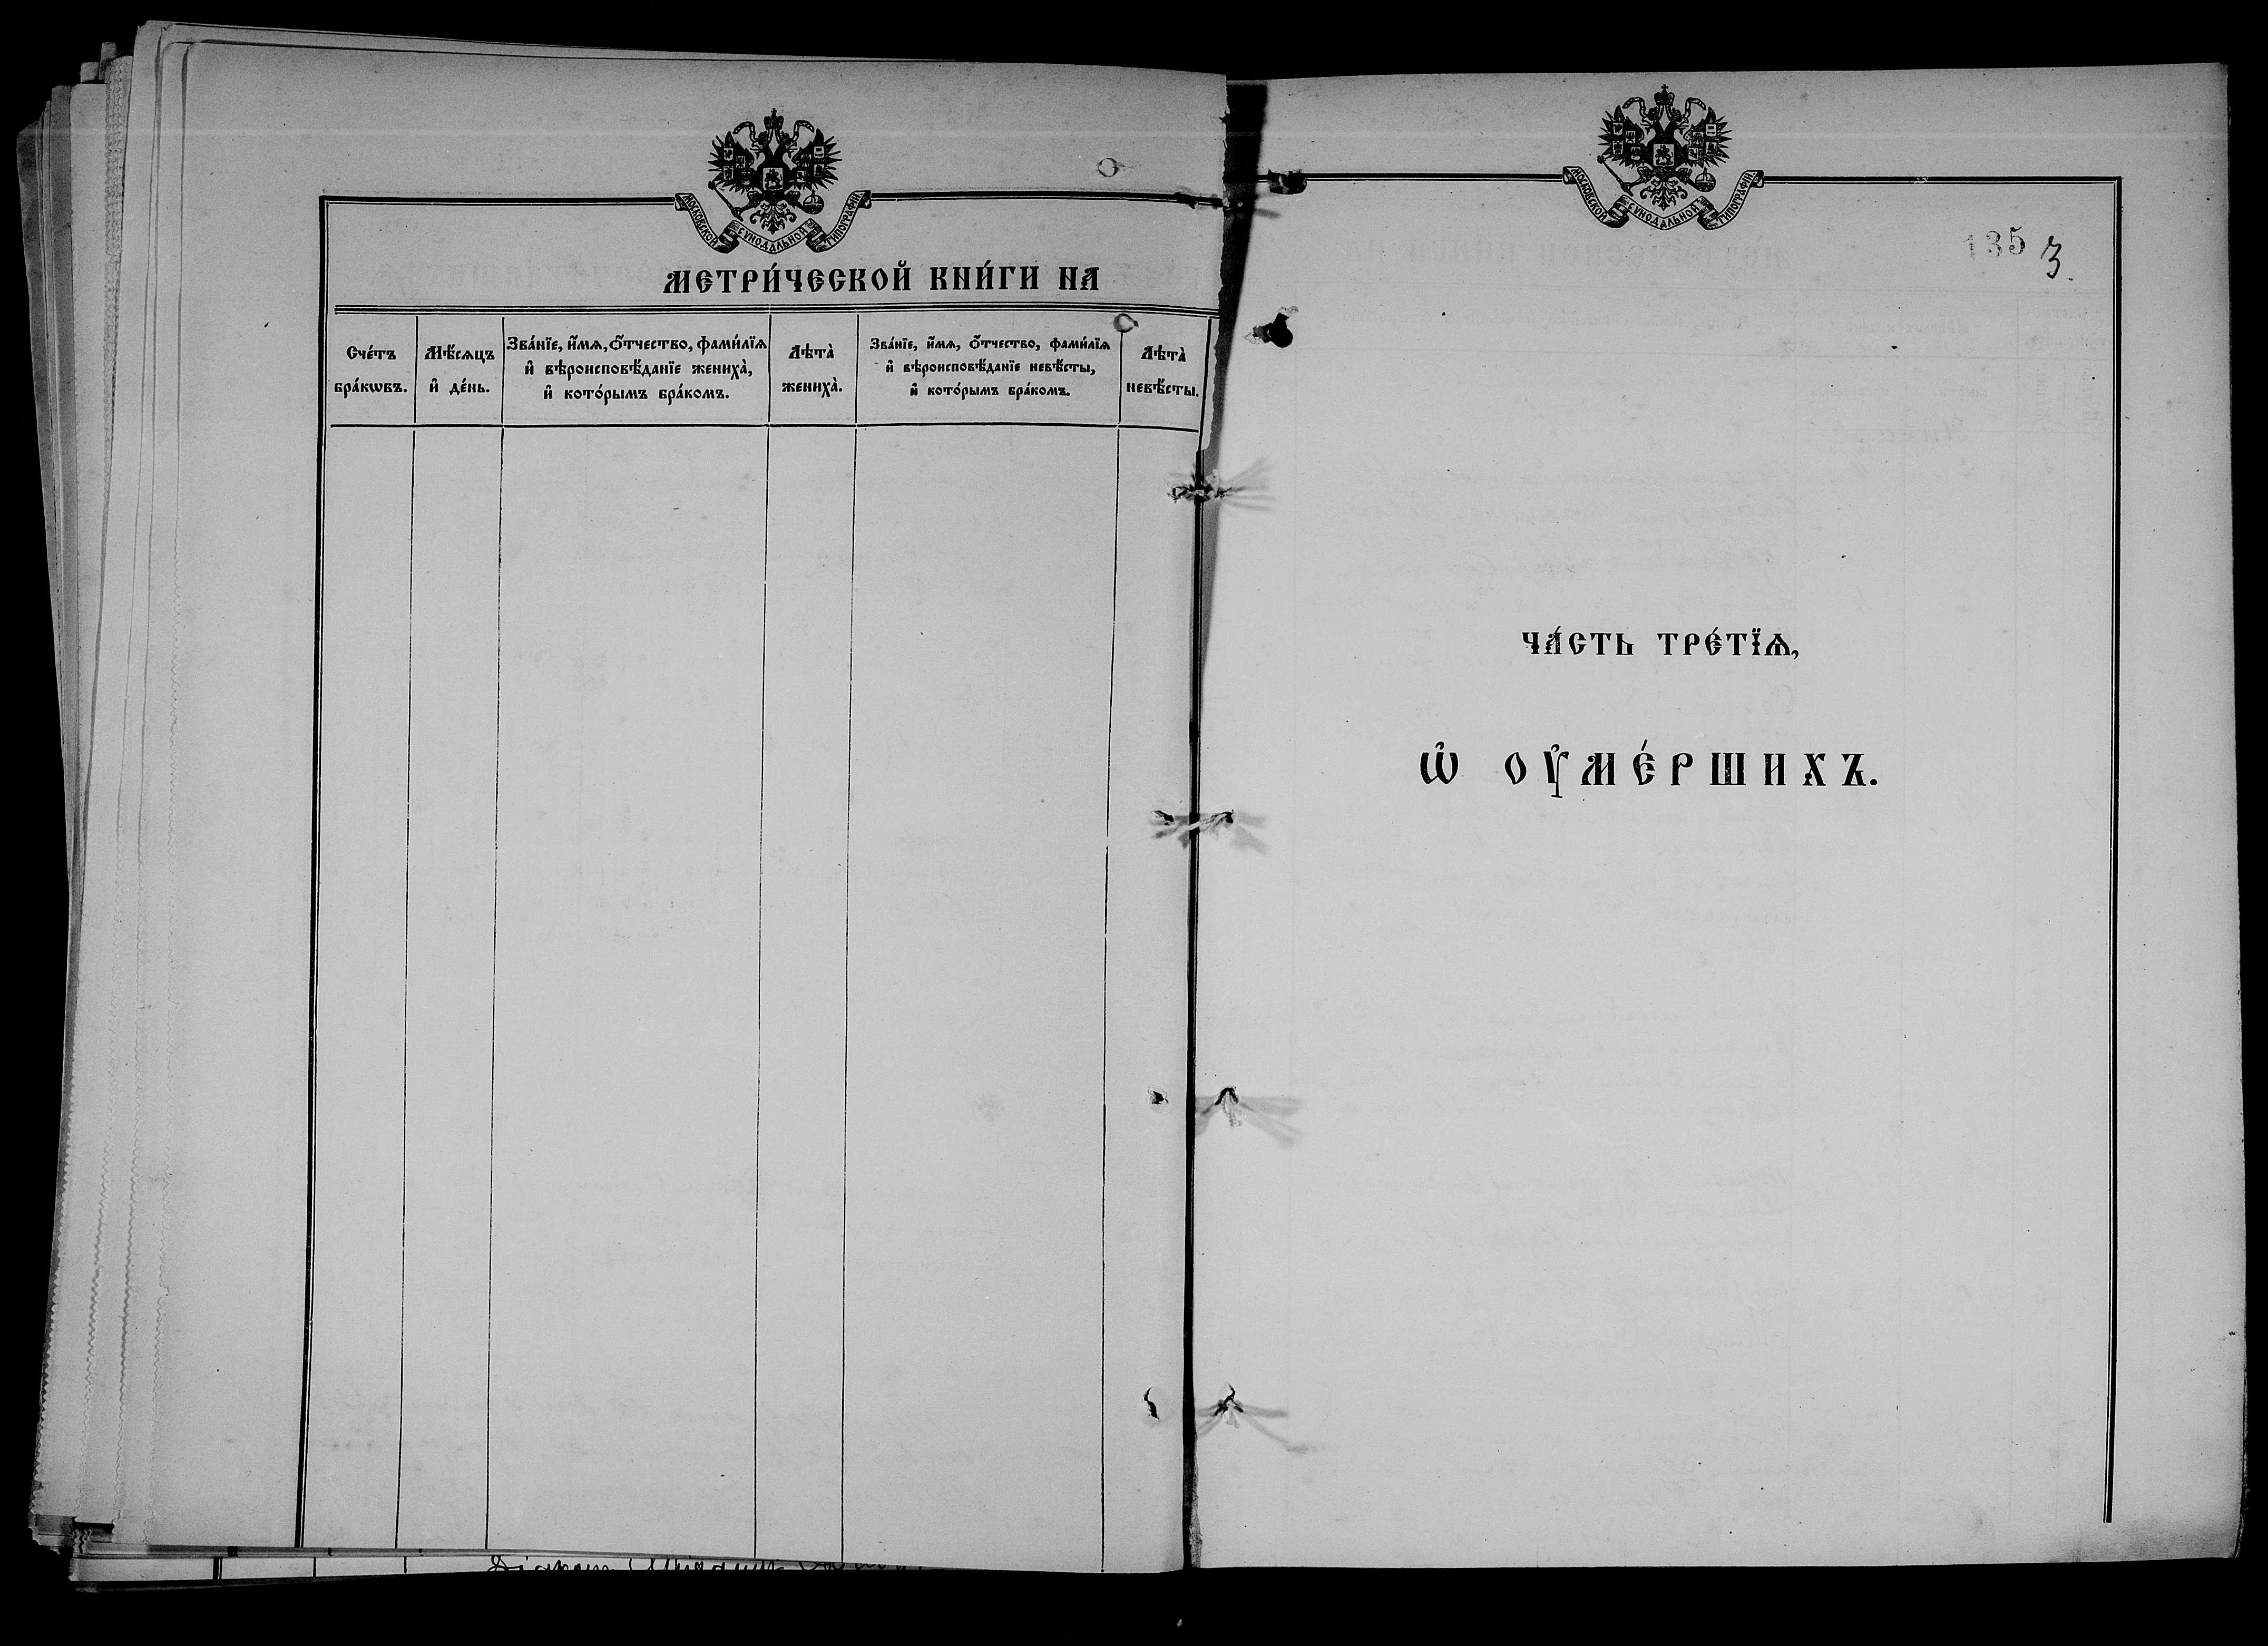 МОСКОВСКОЙ СѴНОДАЛЬНОЙ ТИПОГРАФІИ
МЕТРИ́ЧЕСКОЙ КНИ́ГИ НА
Сче́тъ
бра́кѡвъ.
Мѣ́сѧцъ
и҆ де́нь.
Зва́нїе, и҆́мѧ, ѻ҆́тчество, фами́лїѧ
и҆ вѣроисповѣ́данїе жениха̀,
и҆ кото́рымъ бра́комъ.
Лѣта̀
жениха̀.
Зва́нїе, и҆́мѧ, ѻ҆́тчество, фами́лїѧ
и҆ вѣроисповѣ́данїе невѣ́сты,
и҆ кото́рымъ бра́комъ.
Лѣта̀
невѣ́сты.
Діаконъ
МОСКОВСКОЙ СѴНОДАЛЬНОЙ ТИПОГРАФІИ
135 3.
ЧА́СТЬ ТРЕ́ТЇѦ,
Ѡ҆ ОУ҆МЕ́РШИХЪ.